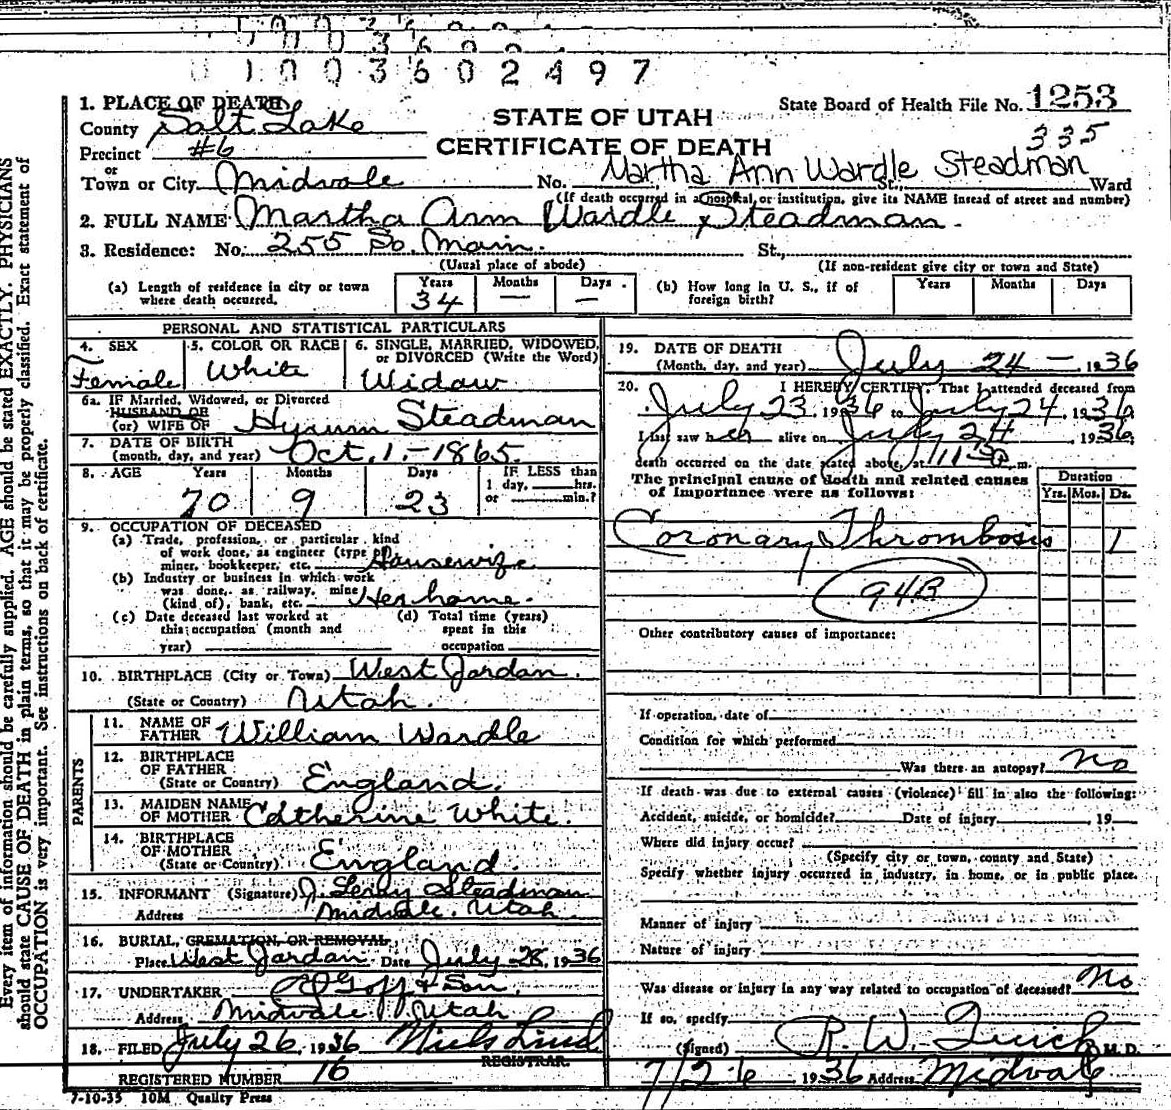 1003602497
1. PLACE OF DEATH
County Salt Lake
Precinct #6
or
Town or City Midvale No. St., Ward
STATE OF UTAH
CERTIFICATE OF DEATH
State Board of Health File No. 1253
335
Martha Ann Wardle Steadman
(If death occurred in a hospital, or institution, give its NAME instead of street and number)
2. FULL NAME Martha Ann Wardle Steadman.
3. Residence: No. 255 So. Main. St.,
(Usual place of abode) (If non-resident give city or town and State)
(a) Length of residence in city or town where death occurred. Years 34 Months — Days —
(b) How long in U. S., if of foreign birth? Years Months Days
PERSONAL AND STATISTICAL PARTICULARS
4. SEX Female
5. COLOR OR RACE White
6. SINGLE, MARRIED, WIDOWED, or DIVORCED (Write the Word) Widow
6a. IF Married, Widowed, or Divorced
HUSBAND OF
(or) WIFE OF Hyrum Steadman
7. DATE OF BIRTH
(month, day, and year) Oct. 1.-1865.
8. AGE Years 70 Months 9 Days 23 IF LESS than 1 day, hrs. or min.?
9. OCCUPATION OF DECEASED
(a) Trade, profession, or particular kind
of work done, as engineer (type of)
miner, bookkeeper, etc. Housewife.
(b) Industry or business in which work
was done, as railway, mine
(kind of), bank, etc. Her home.
(c) Date deceased last worked at this occupation (month and year)
(d) Total time (years) spent in this occupation
10. BIRTHPLACE (City or Town) West Jordan.
(State or Country) Utah.
PARENTS
11. NAME OF FATHER William Wardle
12. BIRTHPLACE OF FATHER
(State or Country) England.
13. MAIDEN NAME OF MOTHER Catherine White.
14. BIRTHPLACE OF MOTHER
(State or Country) England.
15. INFORMANT (Signature) J. Leroy Steadman
Address Midvale, Utah.
16. BURIAL, CREMATION, OR REMOVAL,
Place West Jordan Date July 28, 1936
17. UNDERTAKER Goff & Son.
Address Midvale Utah
18. FILED July 26, 1936 Niels Lind
REGISTRAR.
REGISTERED NUMBER 16
7-10-35 10M Quality Press
19. DATE OF DEATH
(Month, day, and year) July 24 — 1936
20. I HEREBY CERTIFY, That I attended deceased from
July 23, 1936 to July 24, 1936,
I last saw her alive on July 24, 1936,
death occurred on the date stated above, at 11:30 P. m.
The principal cause of death and related causes
of importance were as follows:
Duration
Yrs. Mos. Ds.
Coronary Thrombosis 1
94B
Other contributory causes of importance:
If operation, date of
Condition for which performed
Was there an autopsy? No
If death was due to external causes (violence) fill in also the following:
Accident, suicide, or homicide? Date of injury , 19
Where did injury occur?
(Specify city or town, county and State)
Specify whether injury occurred in industry, in home, or in public place.
Manner of injury
Nature of injury
Was disease or injury in any way related to occupation of deceased? No
If so, specify
(Signed) R. W. Quick M. D.
7/26 1936 Address Midvale
Every item of information should be carefully supplied. AGE should be stated EXACTLY. PHYSICIANS
should state CAUSE OF DEATH in plain terms, so that it may be properly classified. Exact statement of
OCCUPATION is very important. See instructions on back of certificate.